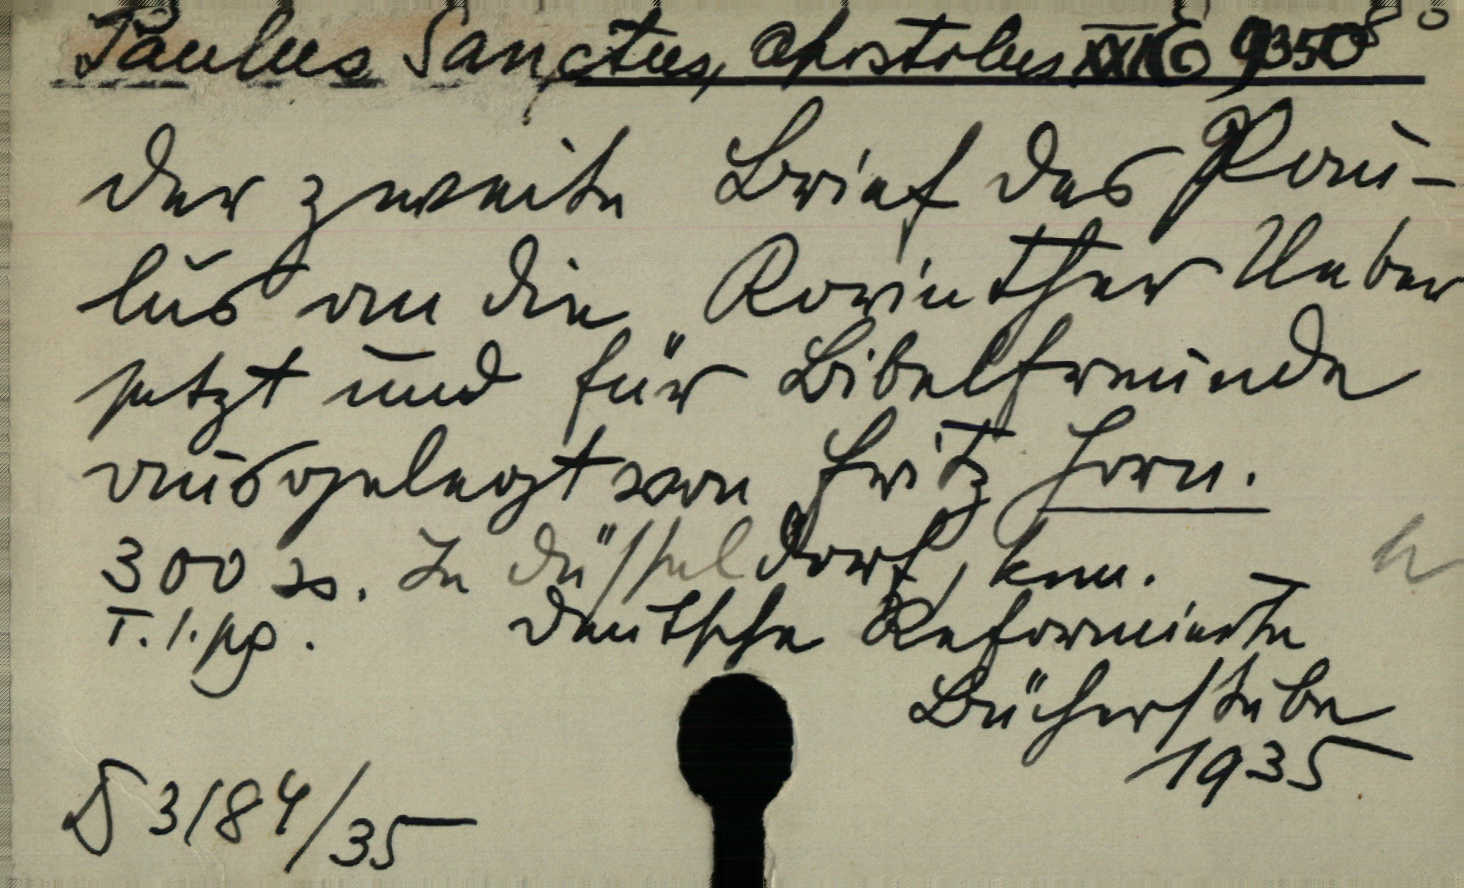 Paulus Sanctus, Apostolus XXIII G 9350
Der zweite Brief des Pau-
lus an die Korinther Ueber
setzt und für Bibelfreunde
ausgelegt von Fritz Horn.
300 S. In Düsseldorf, kom.
T. 1. pg. Deutsche Reformierte
Bücherstube
1935
D 3184/35